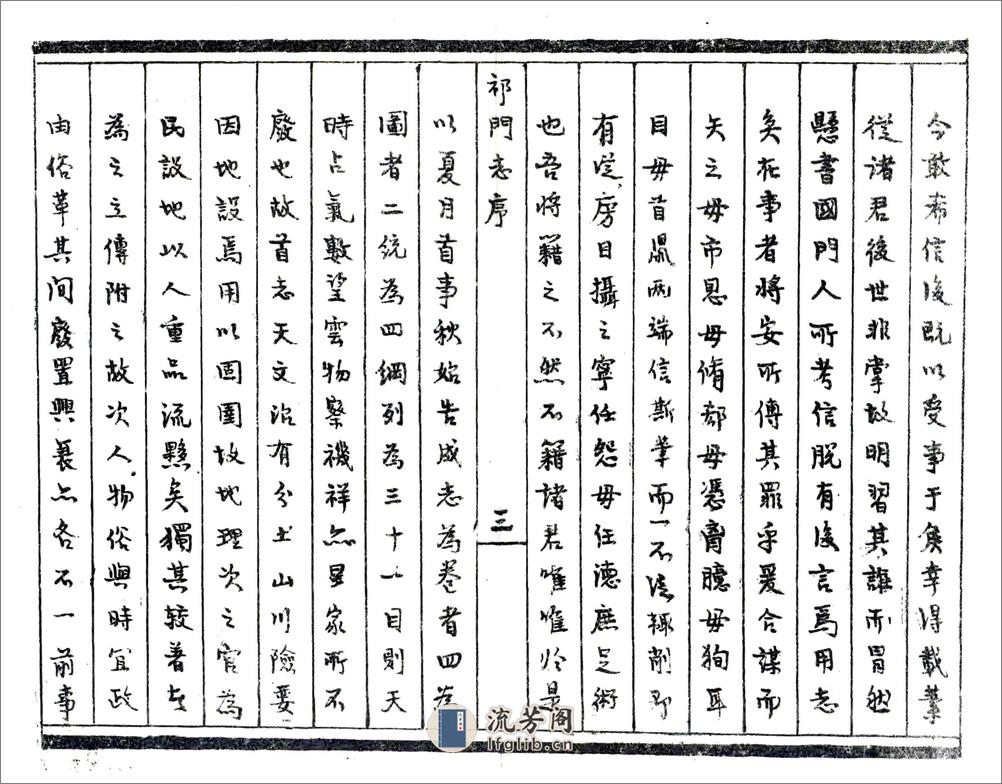 今敢希信後既以受事于侯幸得載筆
從諸君後世非掌故明習其誰而冒然
懸書國門人所考信脫有後言焉用志
矣在事者將安所傅其罪乎爰合謀而
矢之毋市恩毋脩郄毋憑胷臆毋狥耳
目毋首鼠兩端信斯筆而一不法輒削即
有從旁目攝之寧任怨毋任德庶足術
也吾將籍之不然不籍諸君唯唯於是
祁門志序
三
以夏月首事秋始告成志為卷者四為
圖者二統為四綱列為三十一目則天
時占氣數望雲物察禨祥亦星家所不
廢也故首志天文治有分土山川險要
因地設焉用以固圉故地理次之官為
民設地以人重品流縣矣獨其較著者
為之立傳附之故次人物俗與時宜政
由俗革其间廢置興衰亦各不一前事
流芳阁
lfglib.cn